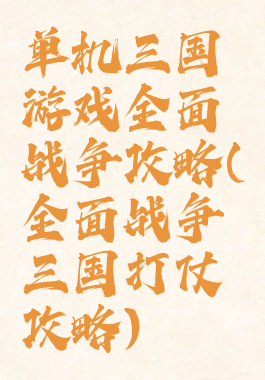 单机三国
游戏全面
战争攻略(
全面战争
三国打仗
攻略)